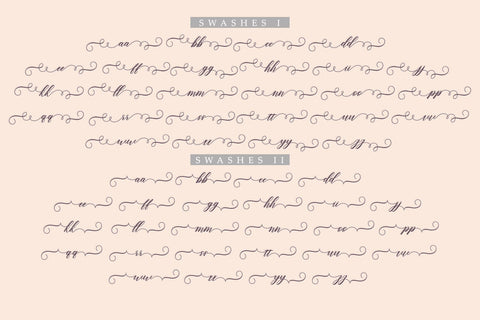 SWASHES I
aa bb cc dd
ee ff gg hh ii jj
kk ll mm nn oo pp
qq ss tt uu vv
ww yy zz
SWASHES II
aa bb cc dd
ee ff gg hh ii jj
kk ll mm nn oo pp
qq ss tt uu vv
ww yy zz